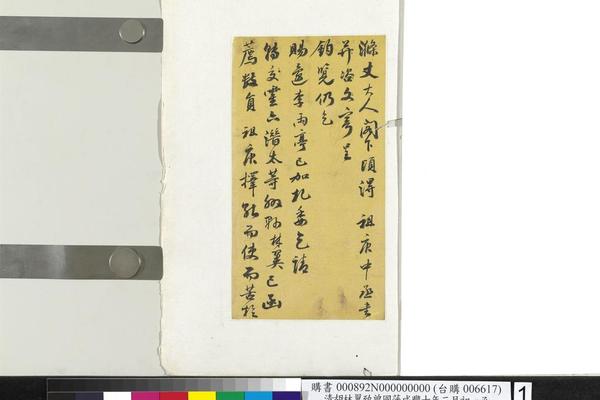 滌丈大人閣下頃得 祖庚中丞書
并咨文寄呈
鈞覽仍乞
賜還李雨亭已加札委乞請
轉交霍六潛太等處林翼已函
薦數員 祖庚擇能而使而苦於
購書 000892N000000000 (台購 006617)
清胡林翼致曾國藩咸豐十年三月初
1